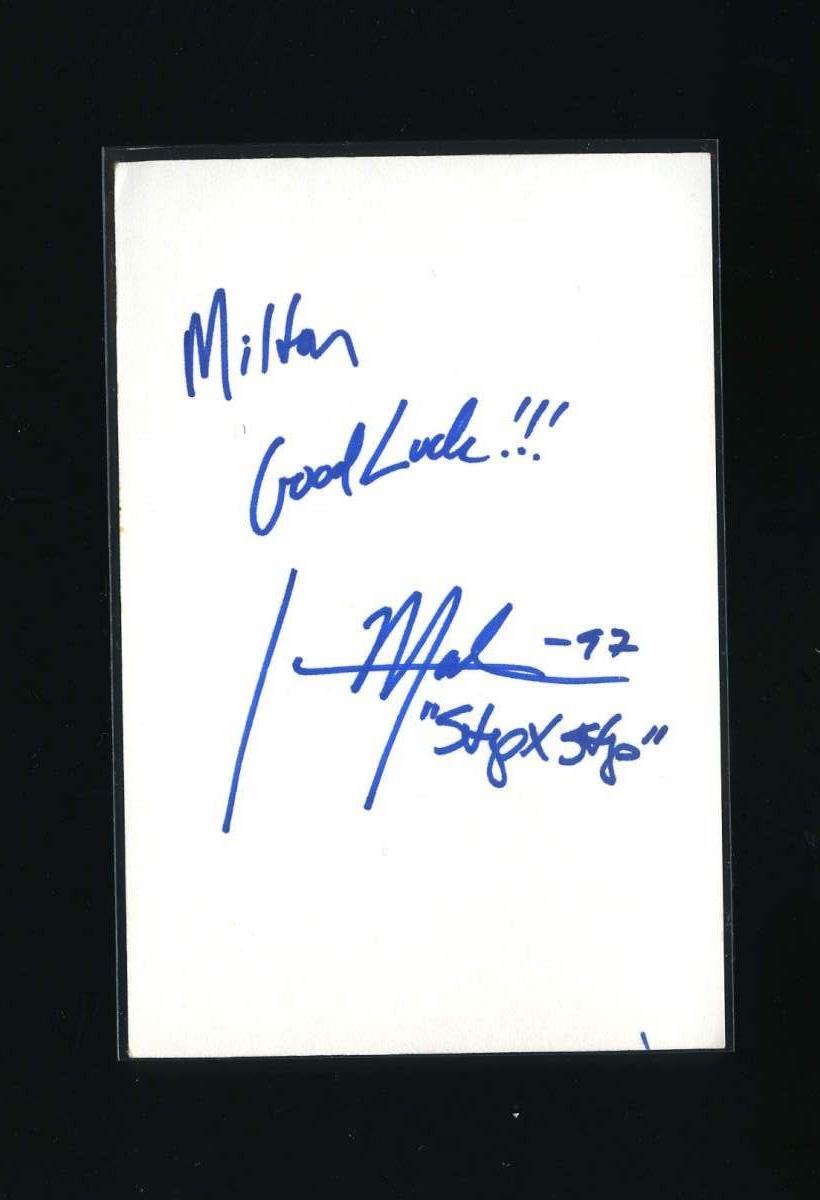 Milton
Good Luck!!!
-97
"Step X Step"